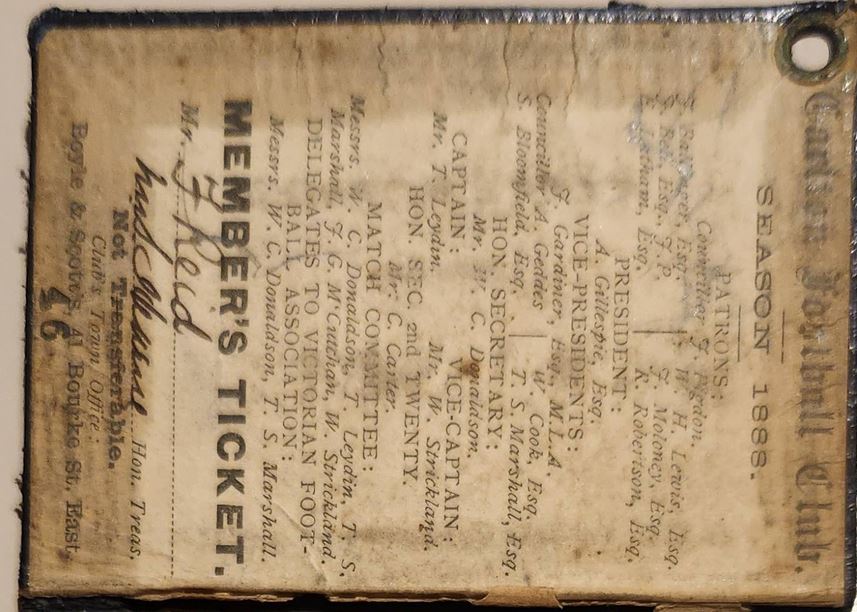 Carlton Football Club.
SEASON 1888.
PATRONS:
Councillor J. Pigdon.
J. Ballenger, Esq. W. H. Lewis, Esq.
J. Bell, Esq., J.P. J. Moloney, Esq.
E. Latham, Esq. R. Robertson, Esq.
PRESIDENT:
A. Gillespie, Esq.
VICE-PRESIDENTS:
J. Gardiner, Esq., M.L.A.
Councillor A. Geddes W. Cook, Esq.
S. Bloomfield, Esq. T. S. Marshall, Esq.
HON. SECRETARY:
Mr. W. C. Donaldson.
CAPTAIN: VICE-CAPTAIN:
Mr. T. Leydin. Mr. W. Strickland.
HON. SEC. 2nd TWENTY.
Mr. C. Carter.
MATCH COMMITTEE:
Messrs. W. C. Donaldson, T. Leydin, T. S.
Marshall, J. G. M'Cutchan, W. Strickland.
DELEGATES TO VICTORIAN FOOT-
BALL ASSOCIATION:
Messrs. W. C. Donaldson, T. S. Marshall.
MEMBER'S TICKET.
Mr. F Reid
Hon. Treas.
Not Transferable.
Club's Town Office:
Boyle & Scott's, 41 Bourke St. East.
46